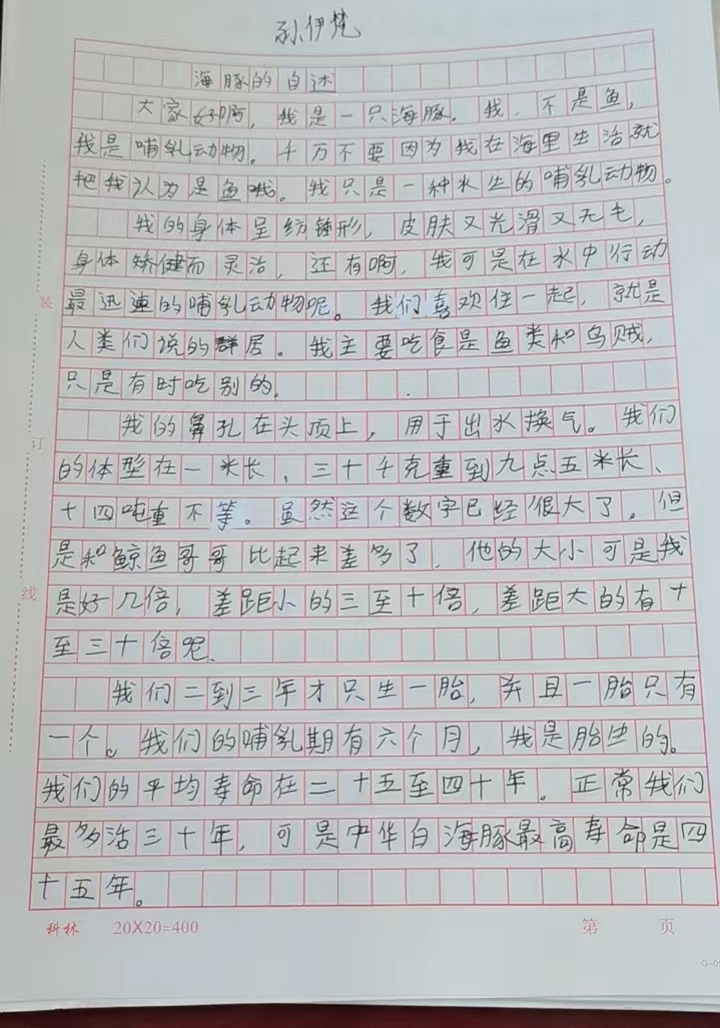 孙伊梵
海豚的自述
大家好啊，我是一只海豚。我，不是鱼，
我是哺乳动物。千万不要因为我在海里生活就
把我认为是鱼哦。我只是一种水生的哺乳动物。
我的身体呈纺锤形，皮肤又光滑又无毛，
身体矫健而灵活，还有啊，我可是在水中行动
装
最迅速的哺乳动物呢。我们喜欢住一起，就是
人类们说的群居。我主要吃食是鱼类和乌贼，
只是有时吃别的.
我的鼻孔在头顶上，用于出水换气。我们
订
的体型在一米长、三十千克重到九点五米长、
十四吨重不等。虽然这个数字已经很大了，但
是和鲸鱼哥哥比起来差多了，他的大小可是我
线
是好几倍，差距小的三至十倍，差距大的有十
至三十倍呢.
我们二到三年才只生一胎，并且一胎只有
一个。我们的哺乳期有六个月，我是胎生的。
我们的平均寿命在二十五至四十年。正常我们
最多活三十年，可是中华白海豚最高寿命是四
十五年。
科林 20X20=400 第 页